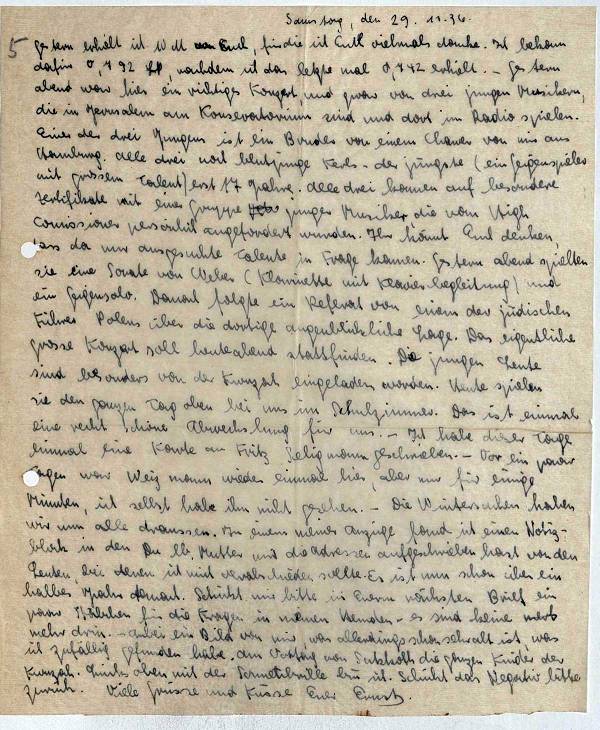 Samstag, den 29. 11. 36.
5
Gestern erhielt ich von Euch, für die ich Euch vielmals danke. Ich bekam
dafür 0,492 LP, nachdem ich das letzte mal 0,442 erhielt. – Gestern
abend war hier ein richtiges Konzert, und zwar von drei jungen Musikern,
die in Jerusalem am Konservatorium sind und dort im Radio spielen.
Einer der drei Jungens ist ein Bruder von einem Chawer von uns aus
Hamburg. Alle drei noch blutjunge Kerls – der jüngste (ein Geigenspieler
mit grossem Talent) erst 17 Jahre. Alle drei kamen auf besondere
Zertifikate mit einer Gruppe junger Musiker die vom High
Comissioner persönlich angefordert wurden. Ihr könnt Euch denken,
dass da nur ausgesuchte Talente in Frage kamen. Gestern abend spielten
sie eine Sonate von Weber (Klarinette mit Klavierbegleitung) und
ein Geigensolo. Danach folgte ein Referat von einem der jüdischen
Führer Polens über die dortige augenblickliche Lage. Das eigentliche
grosse Konzert soll heute abend stattfinden. Die jungen Leute
sind besonders von der Kwuzah eingeladen worden. Heute spielen
sie den ganzen Tag oben bei uns im Schulzimmer. Das ist einmal
eine recht schöne Abwechslung für uns. – Ich habe dieser Tage
einmal eine Karte an Fritz Seligmann geschrieben. – Vor ein paar
Tagen war Weizmann wieder einmal hier, aber nur für einige
Minuten, ich selbst habe ihn nicht gesehen. – Die Wintersachen haben
wir nun alle draussen. In einem meiner Anzüge fand ich einen Notiz-
block in den Du lb. Mutter mir die Adressen aufgeschrieben hast von den
Leuten, bei denen ich mich verabschieden sollte. Es ist nun schon über ein
halbes Jahr danach. Schickt mir bitte in Eurem nächsten Brief ein
paar Stäbchen für die Kragen in meinen Hemden – es sind keine mehr
mehr drin. – Anbei ein Bild von mir, was allerdings schon sehr alt ist, was
ich zufällig gefunden habe. Am Vortag von die ganzen Kinder der
Kwuzah. Links oben mit der bin ich. Schickt das Negativ bitte
zurück. Viele Grüsse und Küsse Euer Ernst.